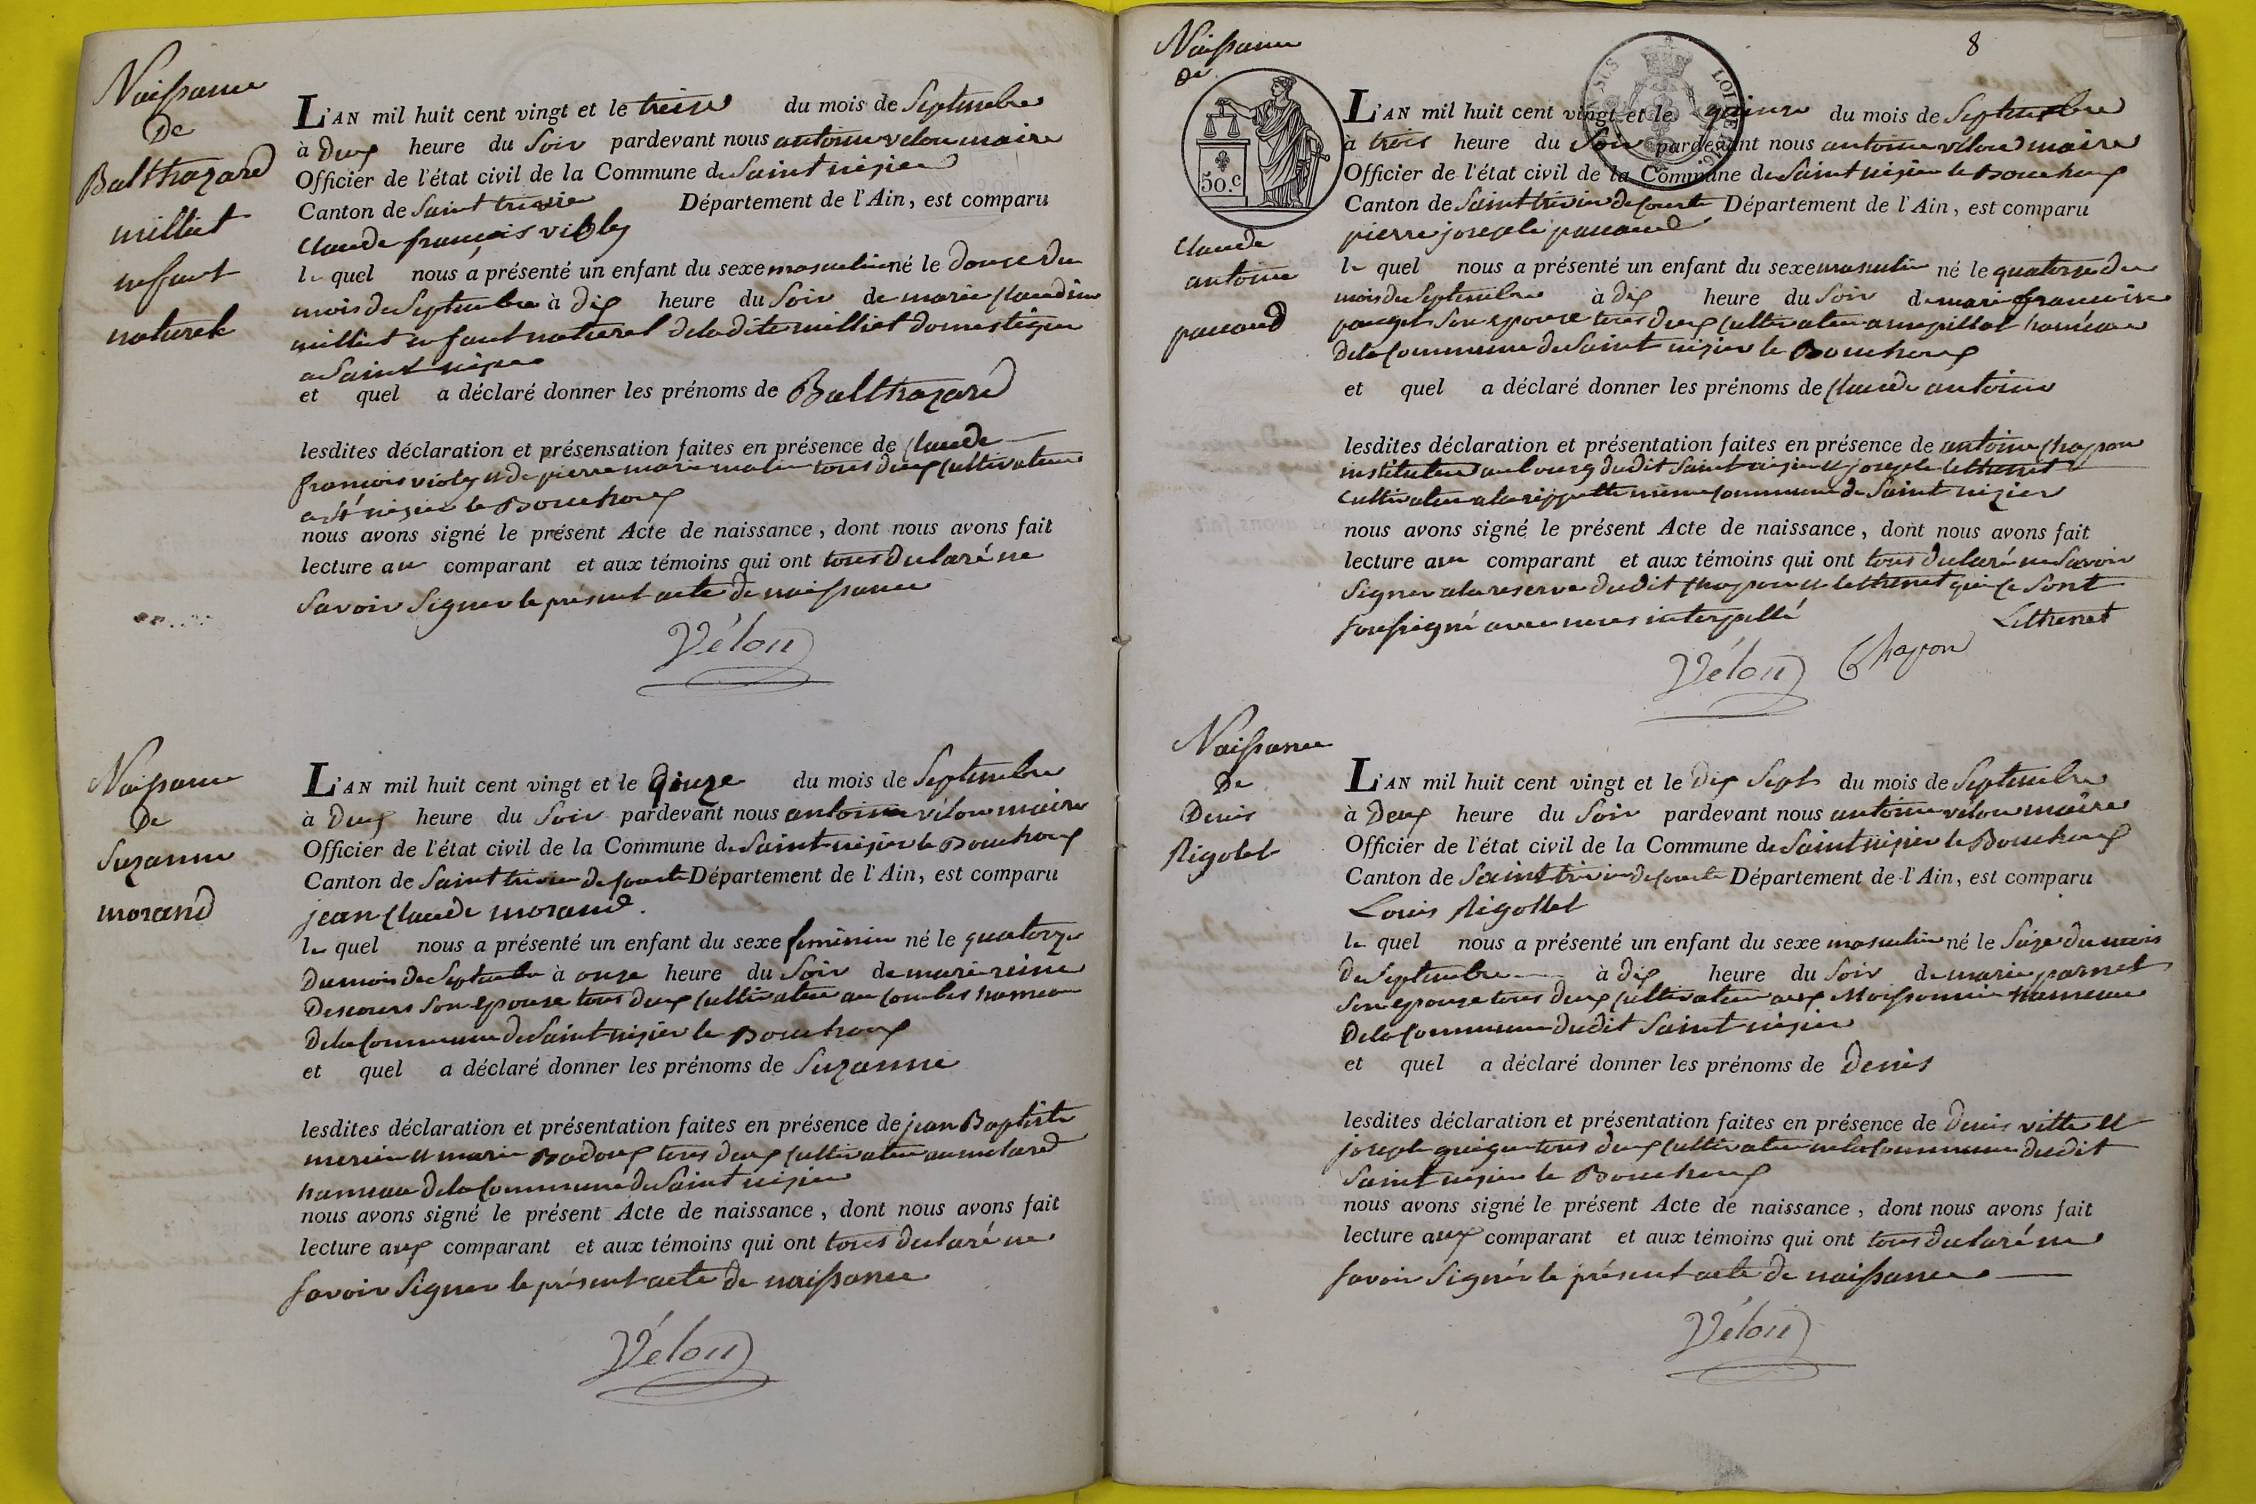 Naissance
De
Balthazard
milliet
enfant
naturele
L'AN mil huit cent vingt et le treise du mois de Septembre
à Deux heure du Soir pardevant nous antoine vélon maire
Officier de l'état civil de la Commune de Saint nizier
Canton de Saint trivier Département de l'Ain, est comparu
Claude françois violy
le quel nous a présenté un enfant du sexe masculin né le douze du
mois de Septembre à dix heure du Soir de marie Claudine
milliet enfant naturel de la dite milliet domestique
a Saint nizier
et quel a déclaré donner les prénoms de Balthazard
lesdites déclaration et présensation faites en présence de Claude
françois violy et de pierre marie malin tous deux Cultivateur
a St nizier le Bouchoux
nous avons signé le présent Acte de naissance, dont nous avons fait
lecture au comparant et aux témoins qui ont tous declaré ne
Savoir Signer le présent acte de naissance
Vélon
Naissance
De
Suzanne
morand
L'AN mil huit cent vingt et le quinze du mois de Septembre
à Deux heure du Soir pardevant nous antoine vélon maire
Officier de l'état civil de la Commune de Saint nizier le Bouchoux
Canton de Saint trivier de Courte Département de l'Ain, est comparu
jean Claude morand.
le quel nous a présenté un enfant du sexe feminin né le quatorze
Du mois de Septembre à onze heure du Soir de marie reine
Descours Son epouse tous deux Cultivateur au combes hameau
De la Commune de Saint nizier le Bouchoux
et quel a déclaré donner les prénoms de Suzanne
lesdites déclaration et présentation faites en présence de jean Baptiste
et marie Badoux tous deux Cultivateur au molard
hameau de la Commune de Saint nizier
nous avons signé le présent Acte de naissance, dont nous avons fait
lecture aux comparant et aux témoins qui ont tous declaré ne
Savoir Signer le présent acte de naissance
Vélon
8
Naissance
De
50.c
Claude
antoine
pauaud
L'AN mil huit cent vingt et le quinze du mois de Septembre
à trois heure du Soir pardevant nous antoine vélon maire
Officier de l'état civil de la Commune de Saint nizier le Bouchoux
Canton de Saint trivier de Courte Département de l'Ain, est comparu
pierre joseph pauaud
le quel nous a présenté un enfant du sexe masculin né le quatorze du
mois de Septembre à dix heure du Soir de marie françoise
pauget Son epouse tous deux Cultivateur a haméau
De la Commune de Saint nizier le Bouchoux
et quel a déclaré donner les prénoms de Claude antoine
lesdites déclaration et présentation faites en présence de antoine Chapon
instituteur au bourg du dit Saint nizier et joseph Lethenet
Cultivateur a la même Commune de Saint nizier
nous avons signé le présent Acte de naissance, dont nous avons fait
lecture au comparant et aux témoins qui ont tous declaré ne Savoir
Signer a la reserve du dit Chapon et Lethenet qui Ce Sont
Soussigné avec nous interpellé
Lethenet
Vélon Chapon
Naissance
De
Denis
Rigolet
L'AN mil huit cent vingt et le Dix Sept du mois de Septembre
à Deux heure du Soir pardevant nous antoine vélon maire
Officier de l'état civil de la Commune de Saint nizier le Bouchoux
Canton de Saint trivier de Courte Département de l'Ain, est comparu
Louis Rigollet
le quel nous a présenté un enfant du sexe masculin né le Seize du mois
de Septembre à dix heure du Soir de marie parnet
Son epouse tous deux Cultivateur aux Moissonnier hameau
De la Commune du dit Saint nizier
et quel a déclaré donner les prénoms de Denis
lesdites déclaration et présentation faites en présence de Denis vitte et
joseph guigue tous deux Cultivateur en la Commune du dit
Saint nizier le Bouchoux
nous avons signé le présent Acte de naissance, dont nous avons fait
lecture aux comparant et aux témoins qui ont tous declaré ne
Savoir Signér le présent acte de naissance
Vélon